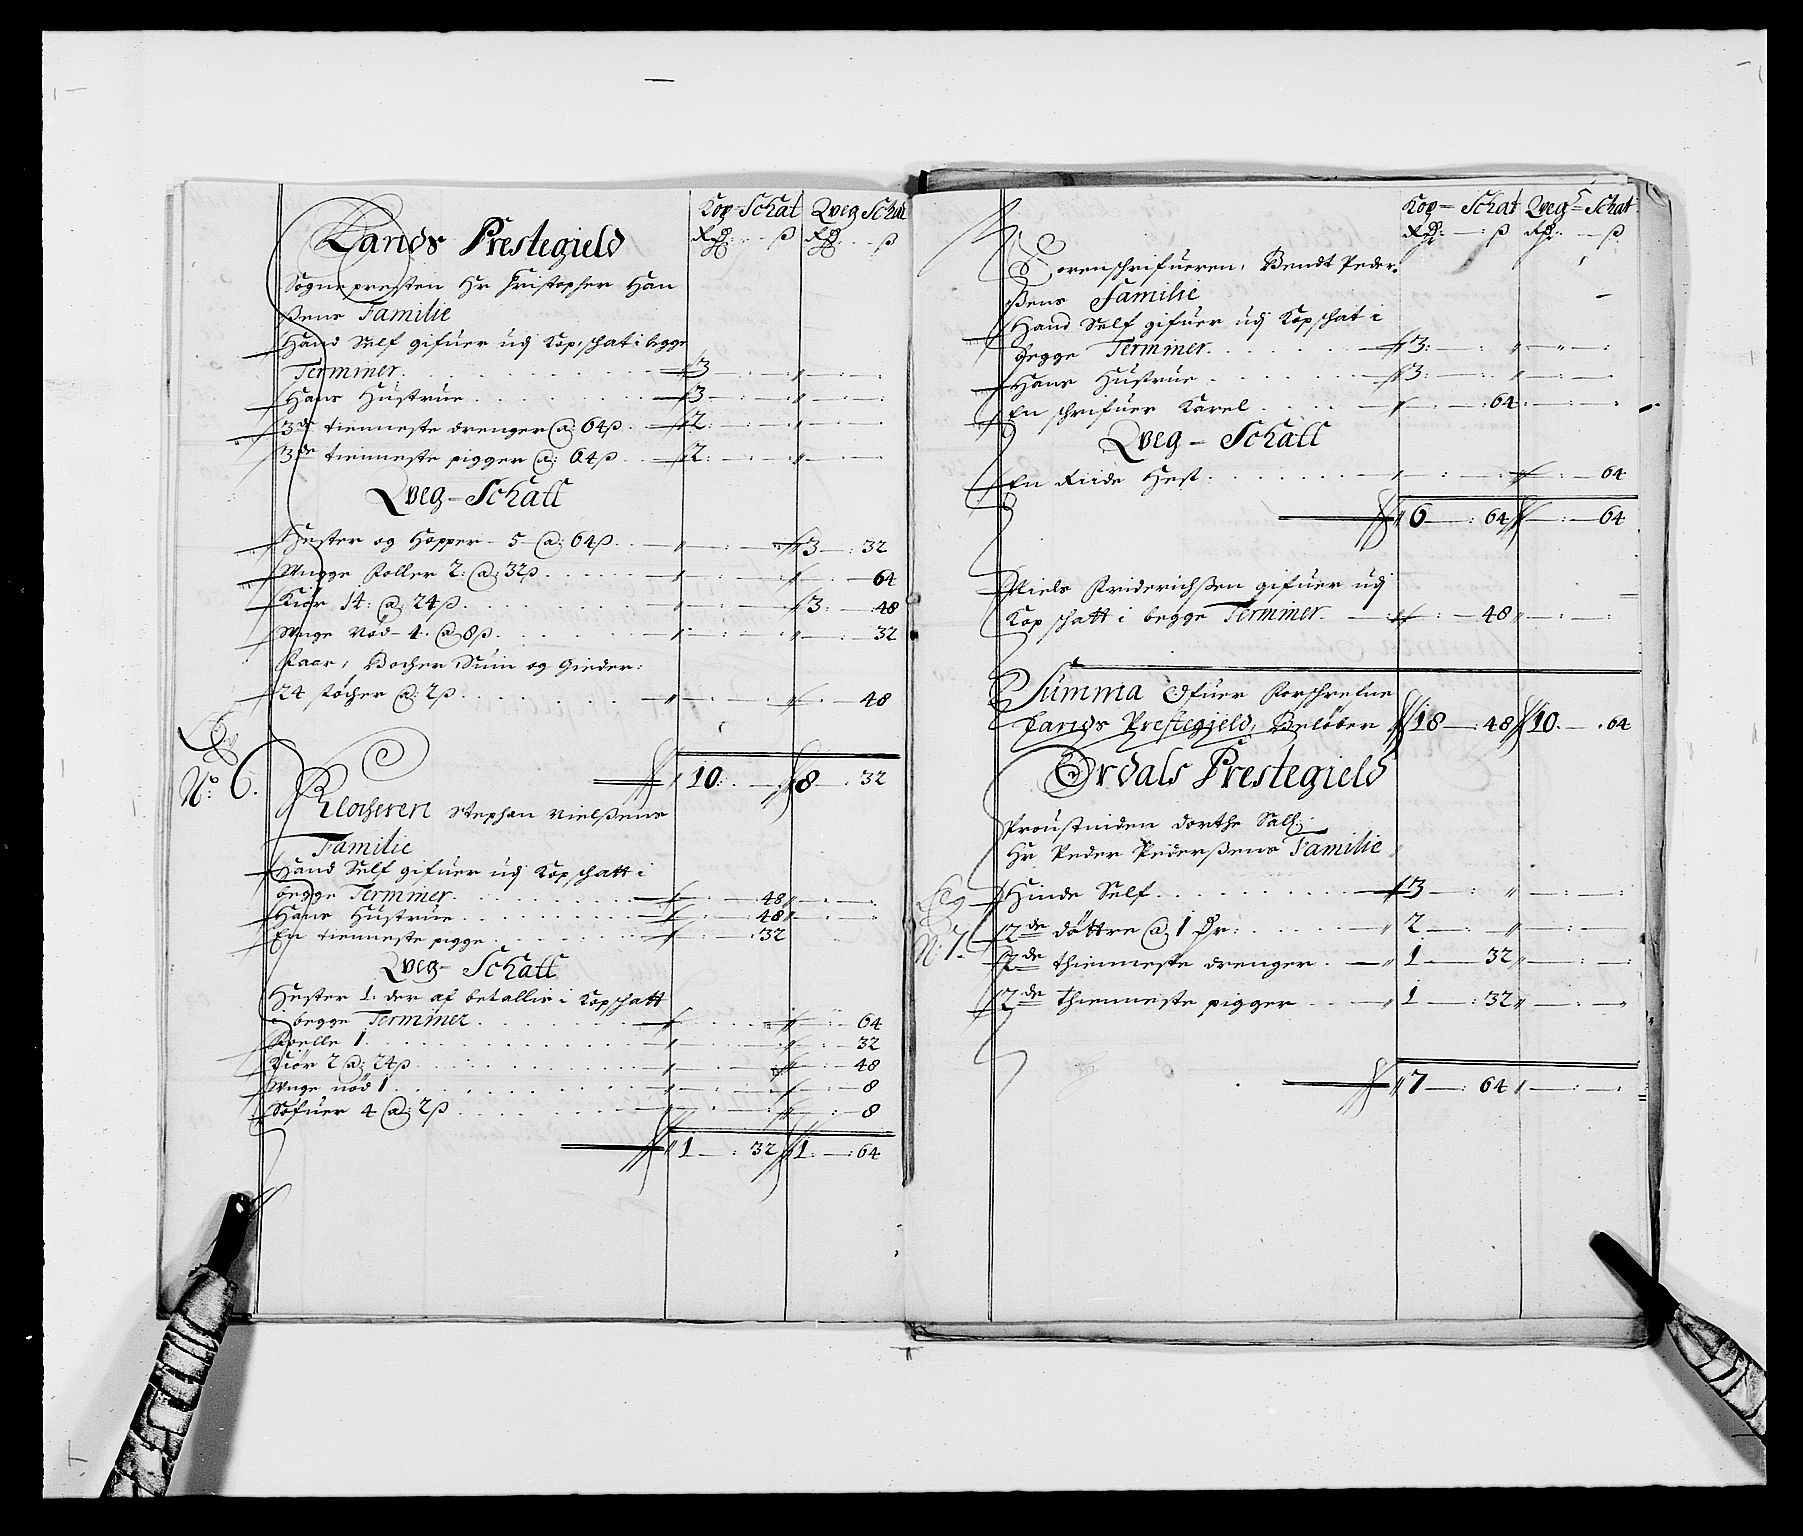 Kop-Schat Qveg Schat
Rdr: ß Rdr: ß
Lands Prestegield
Sognepresten Hr Kristopher Han
ßens Familie
Hand Self gifuer udj Kop-schat i begge
Terminer. 3 — „ —
Hans Hustrue 3 — „ —
3de tienneste drenger @ 64ß. 2: — „ —
3de tienneste pigger @: 64ß 2: — „ —
Qveg-Schatt
Hester og Hopper - 5 - @: 64ß. „ — 3 — : 32
Unge Foller 2: @: 32ß. „ — „ — 64
Kiör 14: @: 24ß. „ — 3 — : 48
Unge Nöd - 4: @ 8ß. „ — „ — 32
Faar, Bocher Suin og Gieder:
24 støcher @: 2ß „ — „ — 48
10: — 8 — . 32
No: 6.
Klocheren Stephan Nielßens
Familie
Hand Self gifuer udj Kopschatt i
begge Terminer. — : 48 „ —
Hans Hustrue — : 48 „ —
En tienneste pigge — : 32
Qveg-Schatt
Hester 1: der af betallis i Kopschatt
i begge Terminer „ — „ — 64
Foelle 1. „ — „ — : 32
Kiör 2 @: 24ß „ — „ — : 48
Unge nöd 1 „ — „ — : 8
Söfuer 4 @: 2ß „ — „ — : 8
1 — : 32 1: — : 64
Kop - Schat Qveg - Schat
Rdr: — : ß Rdr: — ß
Sorenschrifueren, Bendt Peder-
ßens Familie
Hand Self gifuer udj Kopschat i
begge Terminer. 3: — „ —
Hans Hustrue 3: — „ —
En schrifuer Karel „ — : 64 : —
Qveg - Schatt
En Riide Hest „ — „ — 64
6 — : 64 „ — : — 64
Niels Friderichßen gifuer udj
Kopschatt i begge Terminer. — : 48 „ —
Summa Ofuer Forschrefne
Lands Prestegield, Beløber 18 — : 48 10. — . 64
Ordals Prestegield
Proustinden Dorthe Sall:
Hr Peder Pederßens Familie
No 7.
Hinde Self 3 — „ —
2de döttre @: 1 Dr: 2 — „ —
2de thienneste drenger. 1 — 32 „ —
2de thienneste pigger 1 — : 32 „ —
7 — : 64 „ —